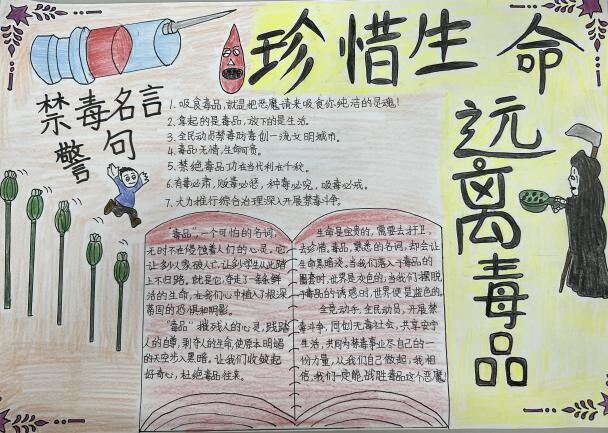 珍惜生命
远离毒品
禁毒名言
警句
1. 吸食毒品,就是把恶魔请来吸食你纯洁的灵魂!
2. 拿起的是毒品,放下的是生活。
3. 全民动员禁毒防毒创一流文明城市。
4. 毒品无情,生命可贵。
5. 禁绝毒品功在当代利在千秋。
6. 有毒必肃,贩毒必惩,种毒必究,吸毒必戒。
7. 大力推行综合治理深入开展禁毒斗争。
"毒品",一个可怕的名词,
无时不在侵蚀着人们的心灵。它
让多少人家破人亡,让多少学生从此踏
上不归路。就是它,夺走了一条条鲜
活的生命,在我们心中植入了根深
蒂固的恐惧和阴影。
"毒品"摧残人的心灵,践踏
人的自尊,剥夺人的生命,使原本明媚
的天空步入黑暗。让我们收敛起
好奇心,杜绝毒品往来。
生命是宝贵的,需要去捍卫,
去珍惜。毒品,熟悉的名词,却会让
生命黑暗淡。当我们落入于毒品的
圈套时,世界是灰色的;当我们摆脱
于毒品的诱惑时,世界便是蓝色的。
全党动手,全民动员,开展禁
毒斗争,同创无毒社会,共享安宁
生活,共同为禁毒事业尽自己的一
份力量,从我们自己做起,我相
信,我们一定能战胜毒品这个恶魔!